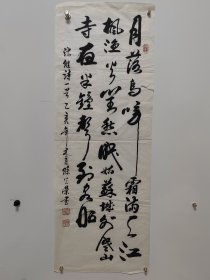 月落烏啼霜滿天江
楓漁火對愁眠姑蘇城外寒山
寺夜半鐘聲到客船
張繼詩一首乙亥年